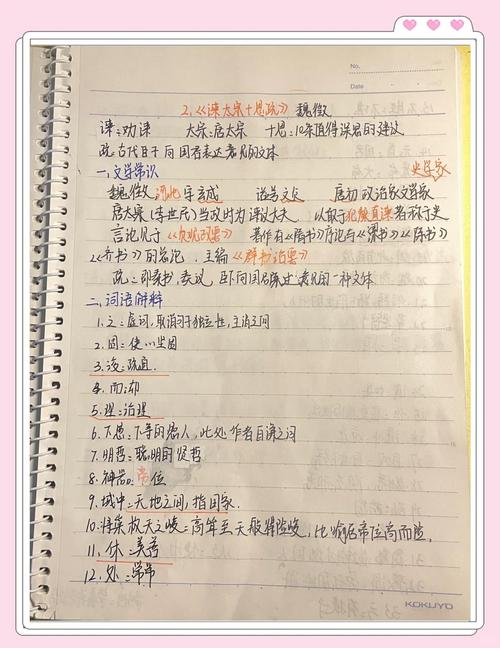 No.
Date
2.《谏太宗十思疏》 魏徵
谏:劝谏 太宗:唐太宗 十思:10条值得深思的建议
疏:古代臣下向国君表达意见的文体
一.文学常识 史学家
魏徵 河北 字玄成 谥号文贞 唐初政治家文学家
唐太宗(李世民)当政时为谏议大夫 以敢于犯颜直谏名称于史
言论见于《贞观政要》 著作有《隋书》序论与《梁书》《陈书》
《齐书》的总论.主编《群书治要》
疏:即奏书,奏议,臣下向国君陈述意见的一种文体
二、词语解释
1.之:虚词,取消句子独立性,主谓之间
2.固:使……坚固
3.浚:疏通.
4.而:却
5.理:治理
6.下愚:下等的愚人,此处作者自谦之词
7.明哲:聪明的贤哲
8.神器:帝位
9.域中:天地之间,指国家.
11.休:美善
12.处:常常
KOKUYO